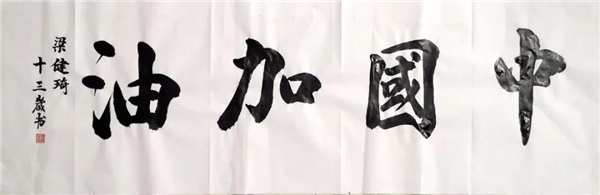 中國加油
梁健琦
十三歲书